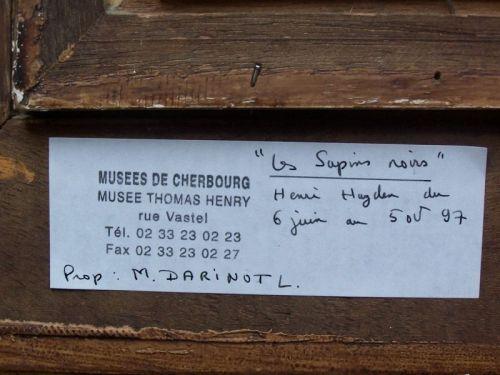 MUSEES DE CHERBOURG
MUSEE THOMAS HENRY
rue Vastel
Tél. 02 33 23 02 23
Fax 02 33 23 02 27
Prop : M. DARINOT L.
"Les Sapins noirs"
Henri Hayden du
6 juin au 5 97